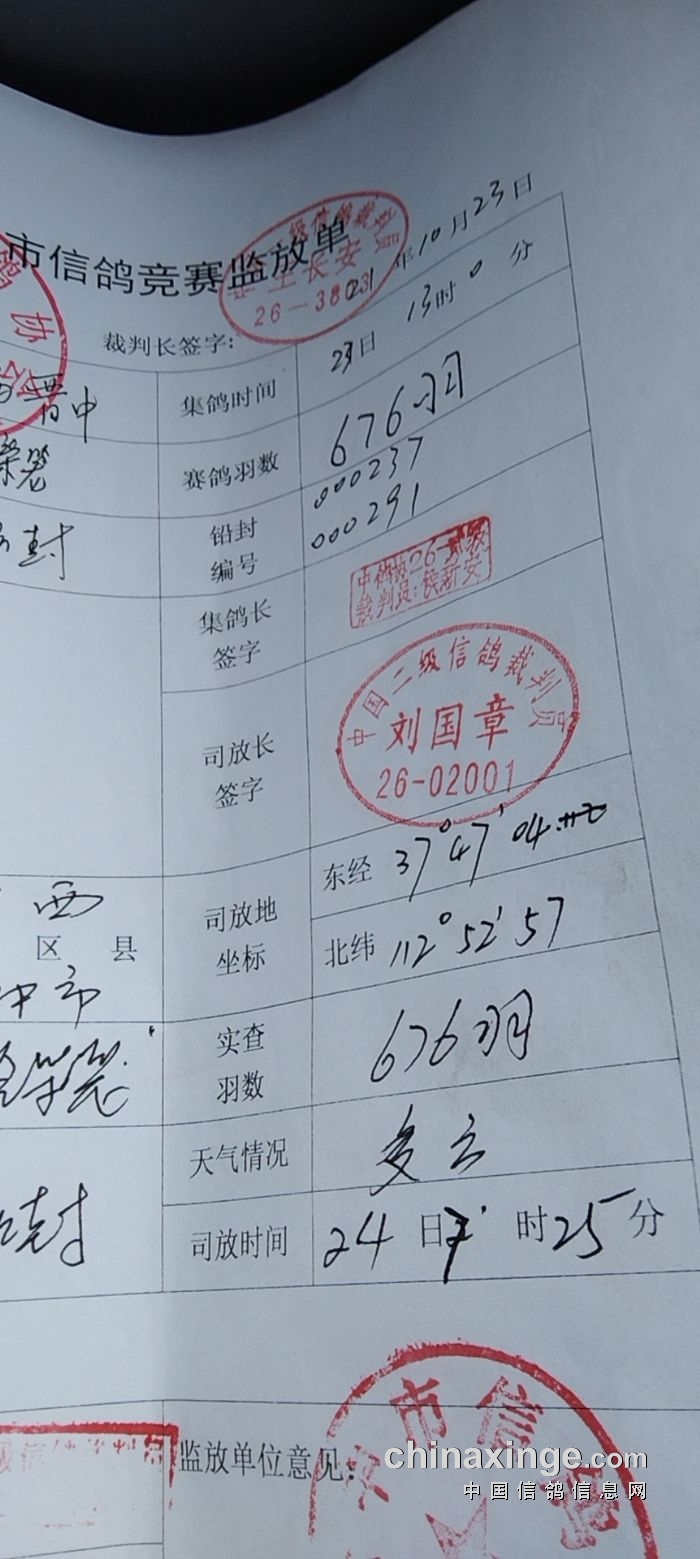 市信鸽竞赛监放单
王长安
26-38031
年10月23日
裁判长签字:
晋中
集鸽时间
23日 13时0分
赛鸽羽数
676羽
封
铅封
编号
000237
000291
集鸽长
签字
中鸽协26-贰级
裁判员:侯新安
司放长
签字
中国二级信鸽裁判员
刘国章
26-02001
西
区 县
中市
司放地
坐标
东经 37°47′04
北纬 112°52′57
实查
羽数
676羽
天气情况
多云
封
司放时间
24日7时25分
监放单位意见:
市信鸽
chinaxinge.com
中国信鸽信息网